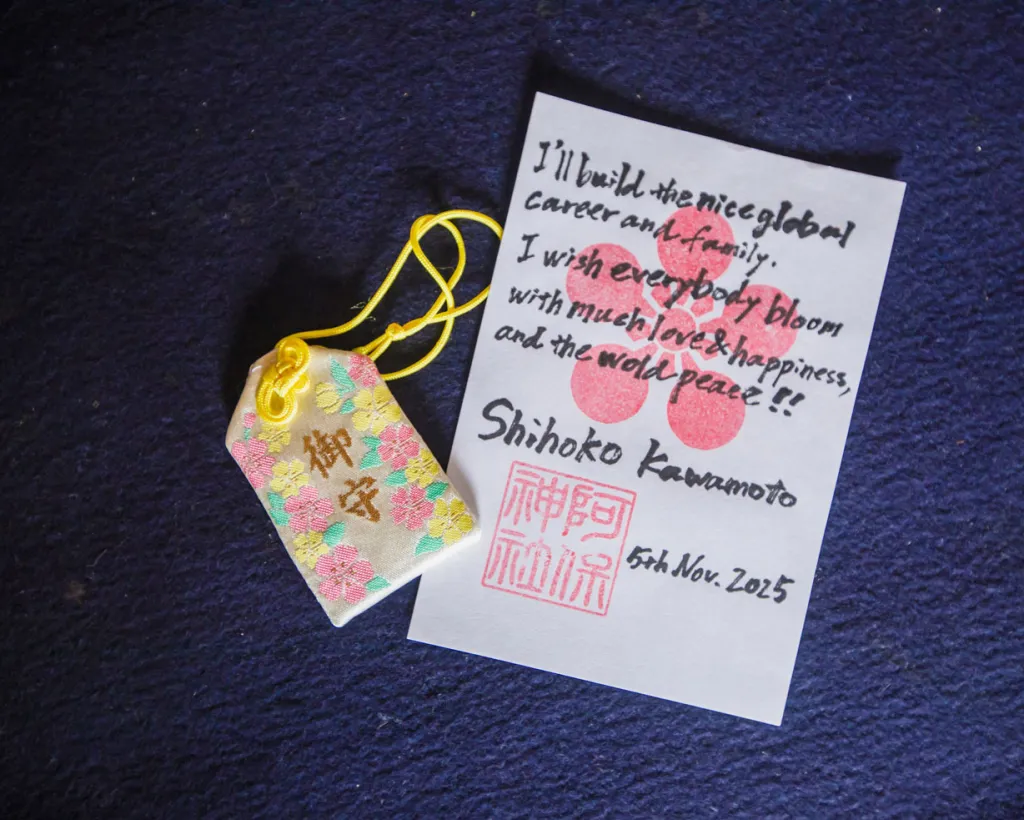 御守
I'll build the nice global
career and family.
I wish everybody bloom
with much love & happiness,
and the wold peace!!
Shihoko Kawamoto
阿保
神社
5th Nov. 2025